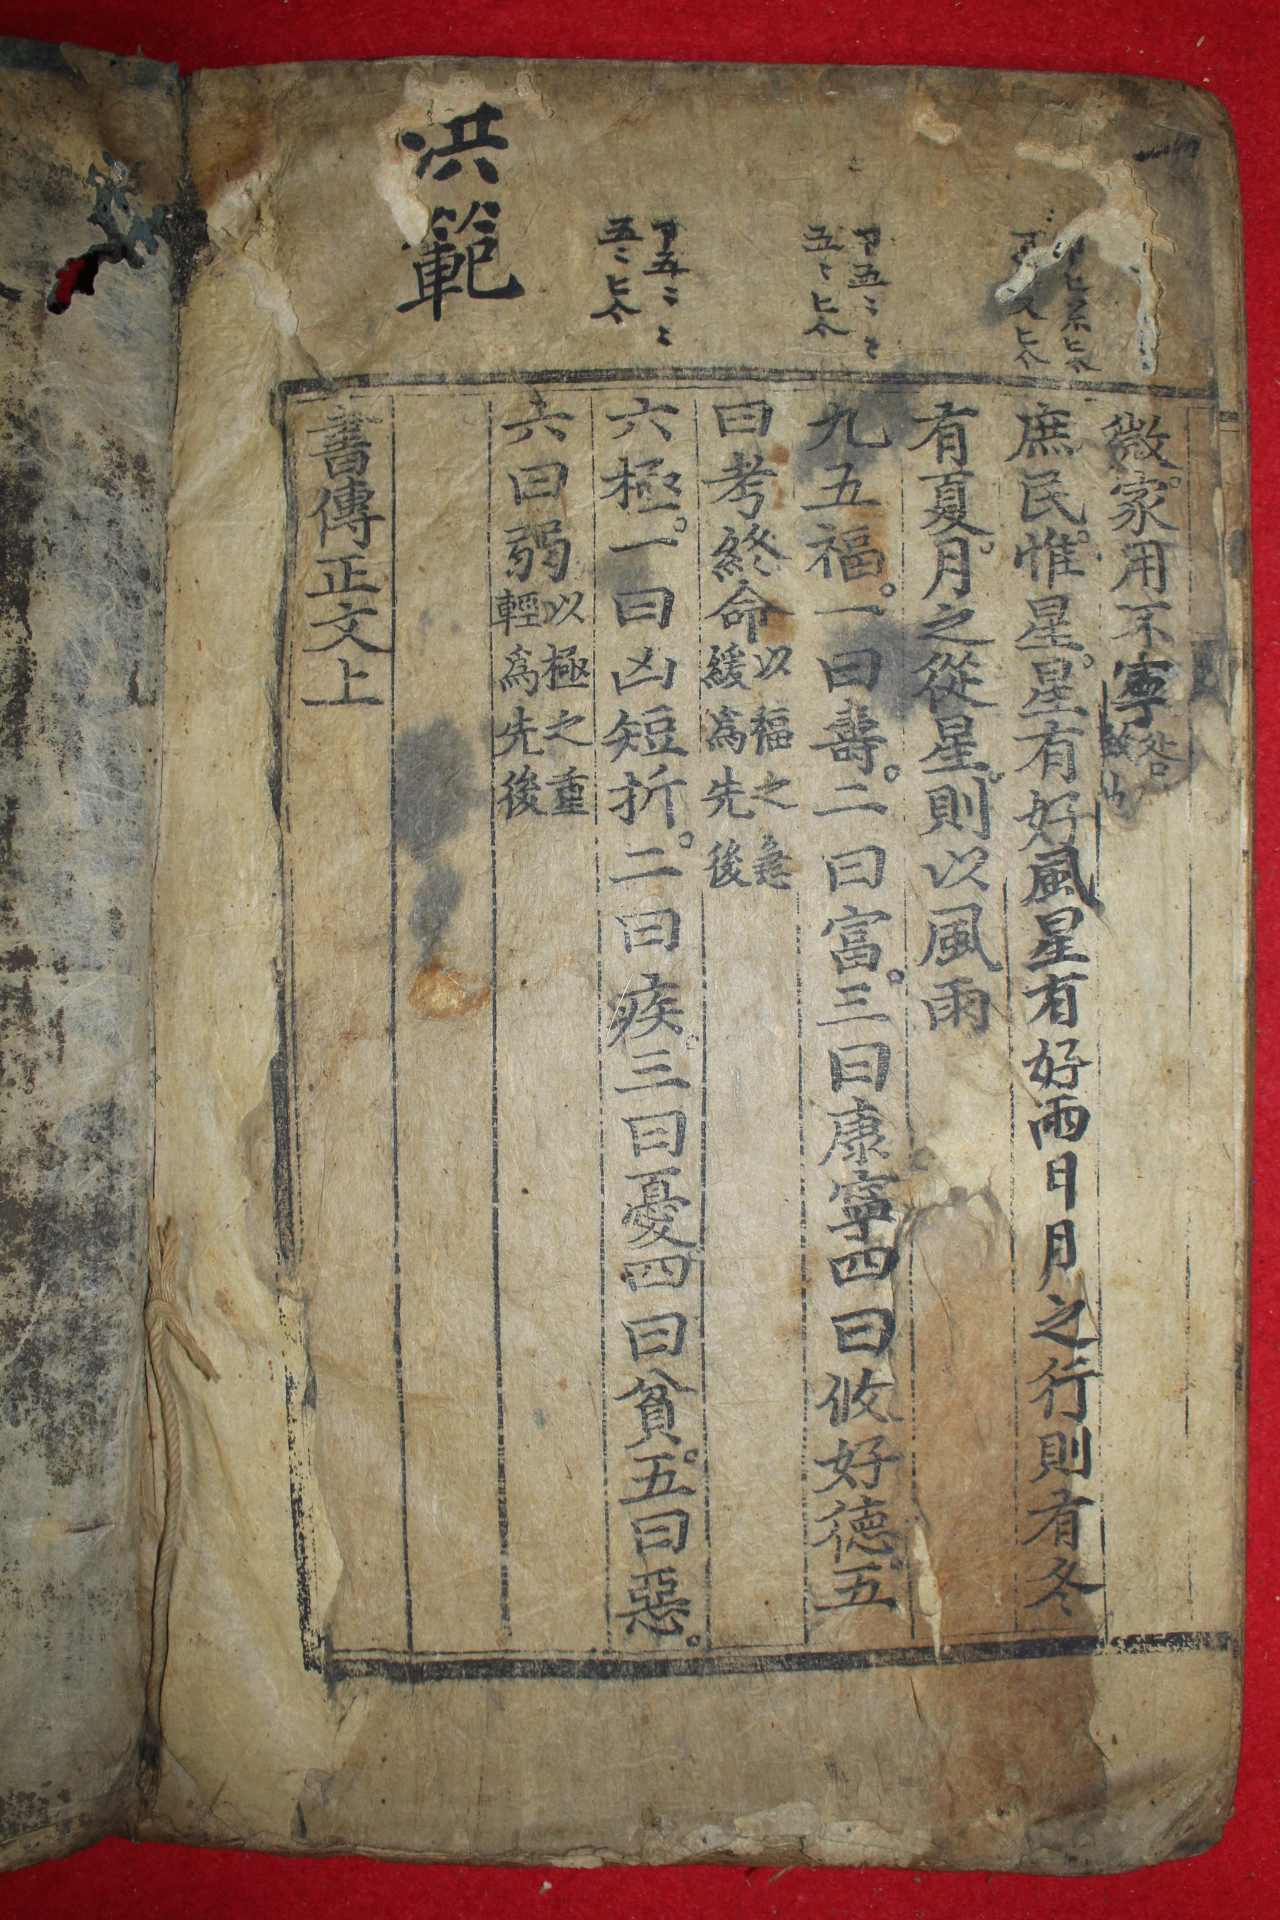 微家用不寧咎
庶民惟星。星有好風星有好雨日月之行則有冬
有夏。月之從星。則以風雨
九五福。一曰壽。二曰富。三曰康寧四曰攸好德。五
曰考終命以福之急
緩爲先後
六極。一曰凶短折。二曰疾。三曰憂四曰貧。五曰惡。
六曰弱以極之重
輕爲先後
書傳正文上
洪範